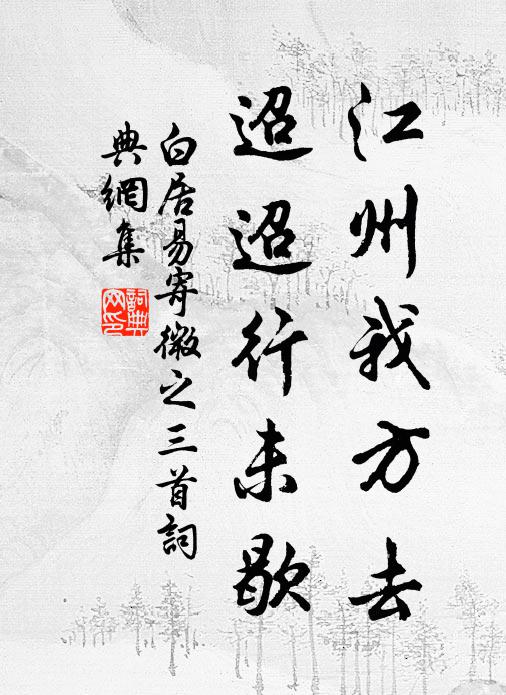 江州我方去
迢迢行未歇
白居易寄微之三首詞
典網集
詞典
网印